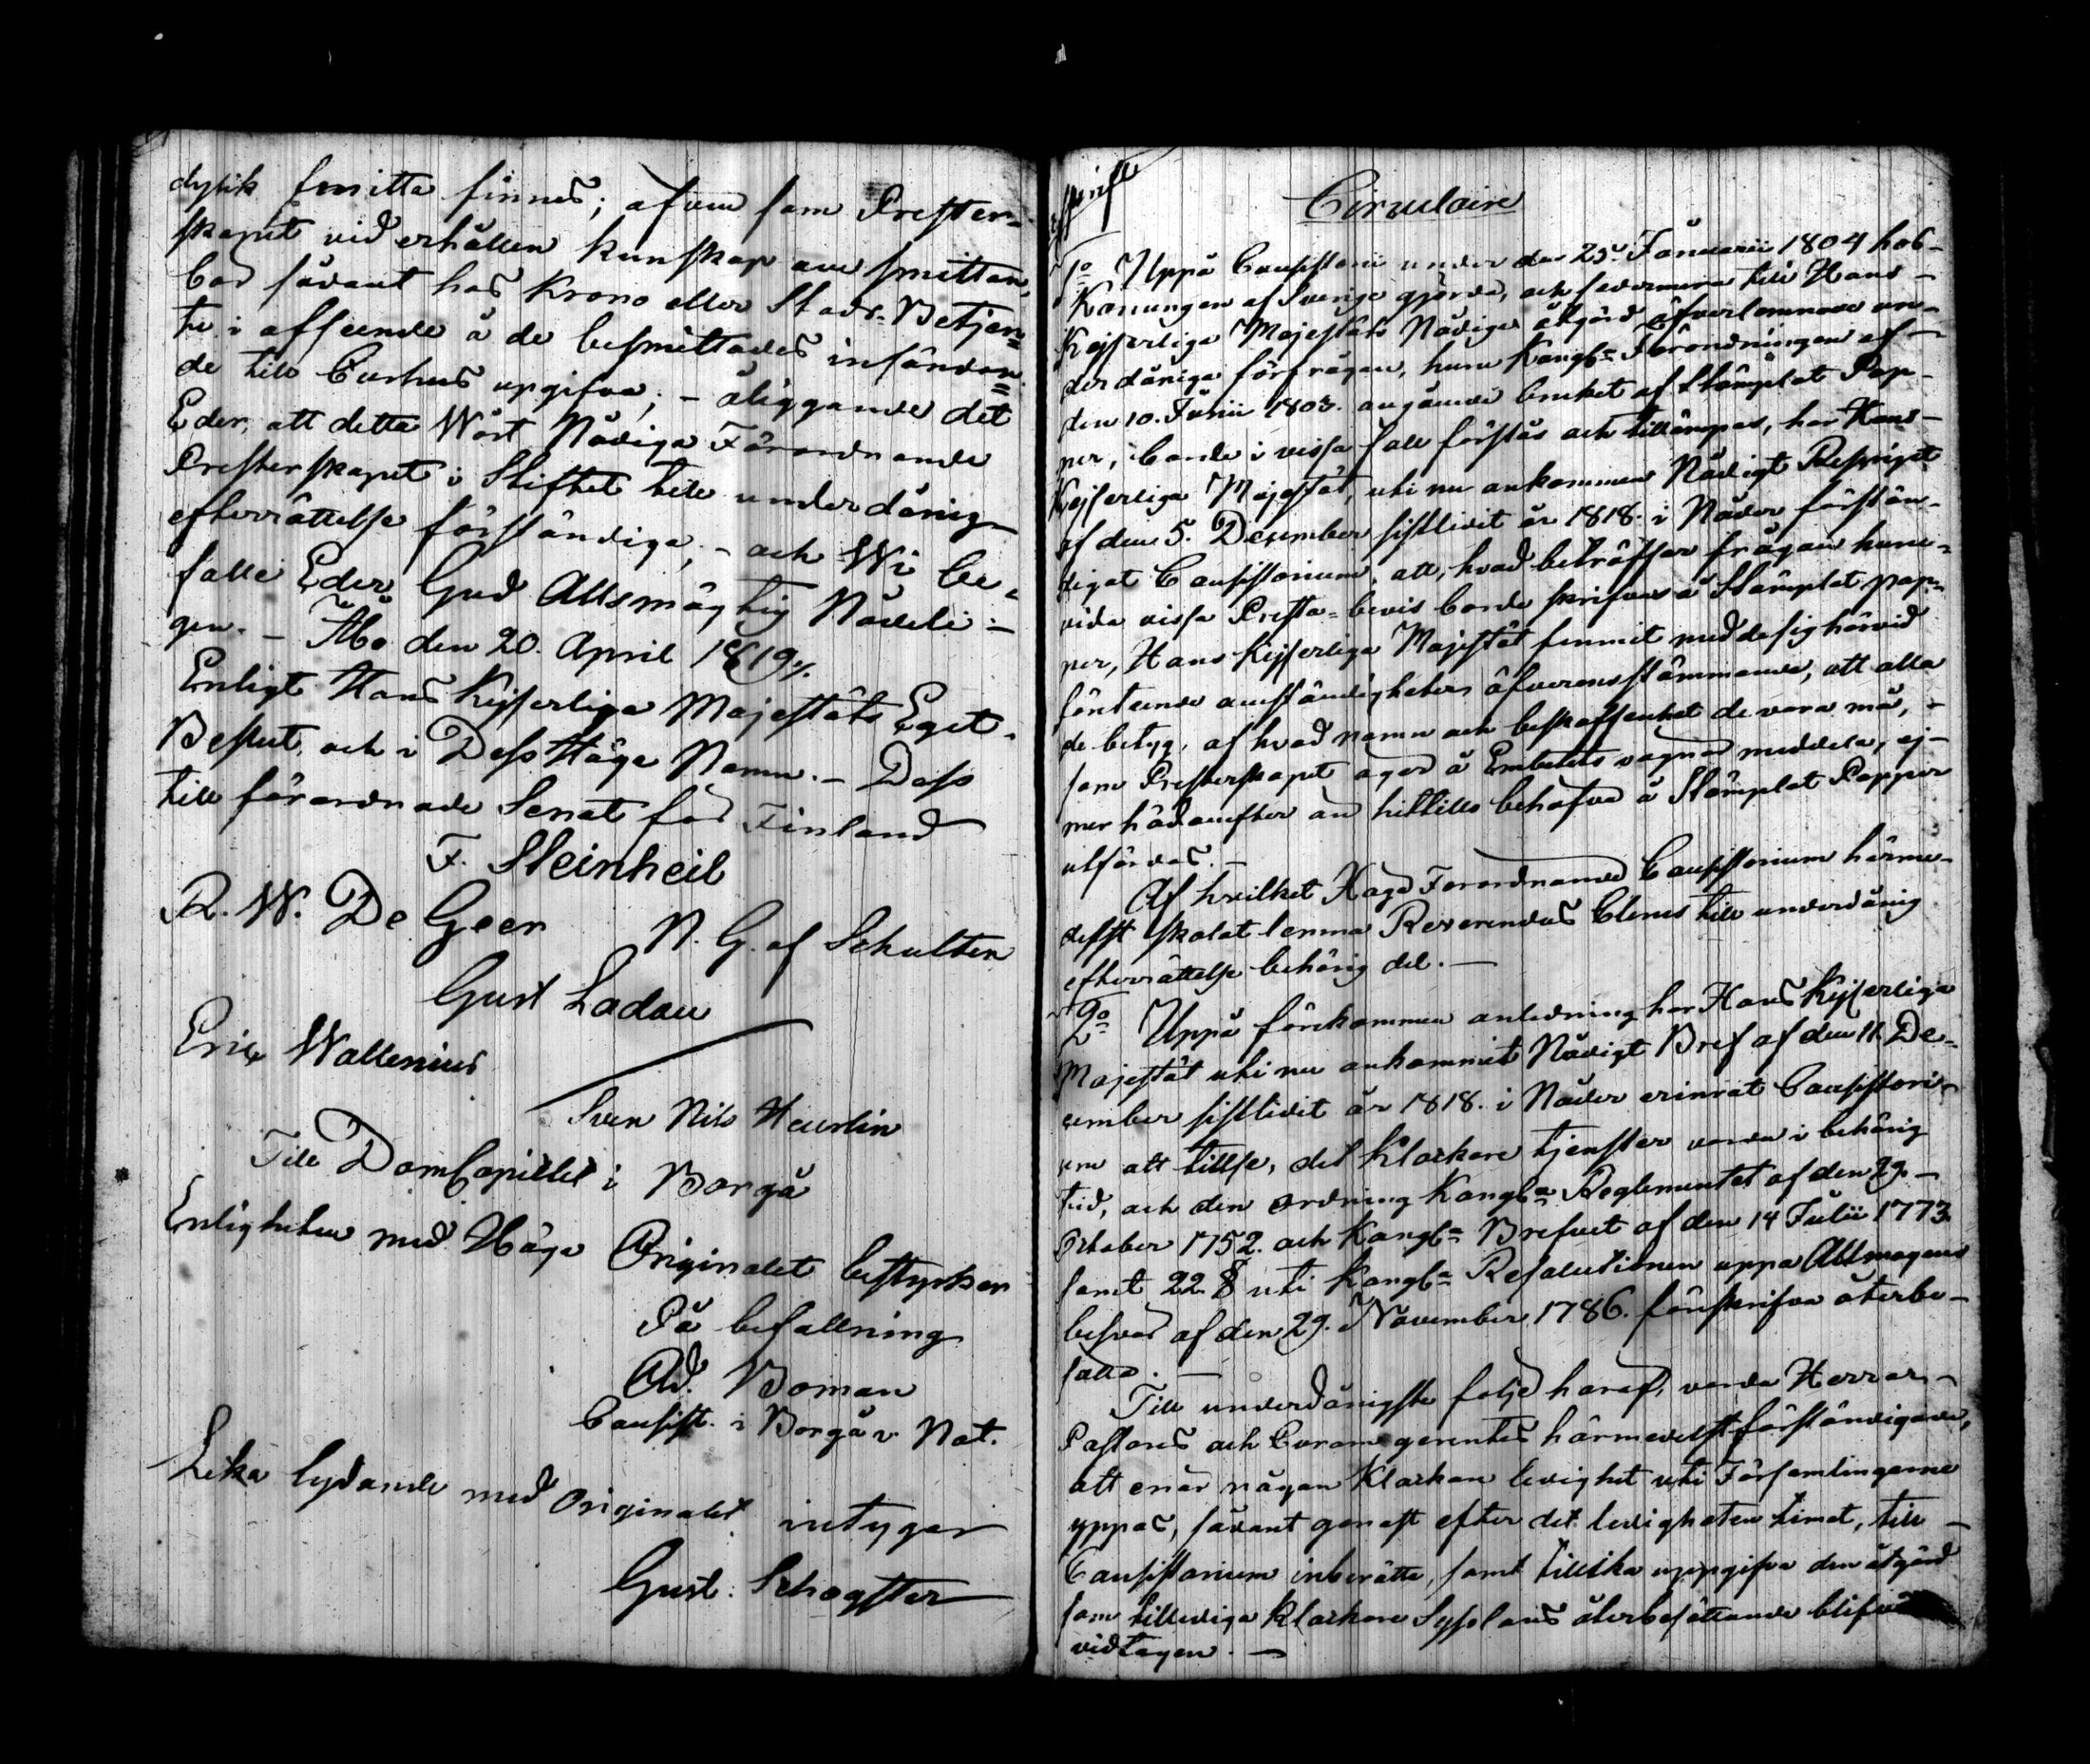 dylik smitta finnes; äfven som Prester-
skapet vid erhållen kunskap om smittan,
bör sådant hos Krono eller Stads-Betjen-
te i afseende å de besmittades insändan-
de till Curhus upgifva; - åliggande det
Eder, att detta Wårt Nådiga Förordnande
Presterskapet i Stiftet till underdånig
efterrättelse förständiga; - och Wi be-
falle Eder Gud Allsmägtig Nådeli-
gen. - Åbo den 20. April 1819.
Enligt Hans Kejserliga Majestäts Eget
Beslut, och i Dess Höga Namn. - Dess
till förordnade Senat för Finland
F. Steinheil
R. W. De Geer
N. G. af Schulten
Gust Ladau
Eric Wallenius
Sven Nils Heurlin
Till DomCapitlet i Borgå
Enligheten med Höga Originalet bestyrker
På befallning
Ad. Boman
Consist. i Borgå v. Not.
Lika lydande med Originalet intygar
Gust. Schogster
Circulaire
1o Uppå Consistorii under den 25. Januarii 1804 hos
Konungen af Sverige gjorde, och sedermera till Hans
Kejserliga Majestäts Nådiga åtgärd öfverlemnade un-
derdåniga förfrågan, huru Kongl. Förordningen af
den 10. Junii 1803. angående bruket af Stämplat Pap-
per, borde i vissa fall förstås och tillämpas, har Hans
Kejserliga Majestät, uti nu ankommen Nådigt Rescript
af den 5. December sistlidit år 1818. i Nåder förstän-
digat Consistorium, att, hvad beträffar frågan huru-
vida vissa Presta-bevis borde skrifvas å Stämplat pap-
per, Hans Kejserliga Majestät funnit med de sig härvid
företeende omständigheter öfverensstämmande, att alla
de betyg, af hvad namn och beskaffenhet de vara må,
som Presterskapet äger å Embetets vägnar meddela, ej
mer hädanefter än hittills behöfva å Stämplat Papper
utfärdas. -
Af hvilket Höga Förordnande Consistorium härme-
delst skolat lemna Reverendus Clerus till underdånig
efterrättelse behörig del. -
2o Uppå förekommen anledning har Hans Kejserliga
Majestät uti nu ankommit Nådigt Bref af den 11. De-
cember sistlidit år 1818. i Nåder erinrat Consistori-
um att tillse, det Klockare tjenster varda i behörig
tid, och den ordning Kongl. Reglementet af den 27.
October 1752. och Kongl. Brefvet af den 14 Julii 1773
samt 22 § uti Kongl. Resolutionen uppå Allmogens
besvär af den 29. November 1786. föreskrifva återbe-
satta. -
Till underdånigste följe häraf, varda Herrar
Pastores och Curam gerentes härmedelst förständigade,
att enär någon Klockare ledighet uti Församlingarne
yppas, sådant genast efter det ledigheten timat, till
Consistorium inberätta, samt tillika uppgifva den åtgärd
som till lediga Klockare Sysslans återbesättande blifvit
vidtagen. -